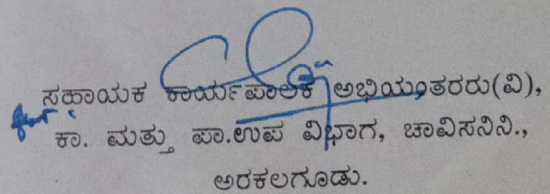 ಸಹಾಯಕ ಕಾರ್ಯಪಾಲಕ ಅಭಿಯಂತರರು(ವಿ),
ಕಾ. ಮತ್ತು ಪಾ.ಉಪ ವಿಭಾಗ, ಚಾವಿಸನಿನಿ.,
ಅರಕಲಗೂಡು.